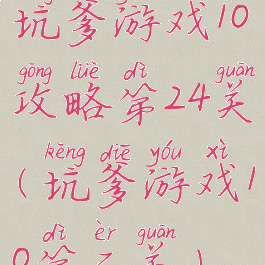 坑爹游戏10
gōng lüè dì guān
攻略第24关
kēng diē yóu xì
(坑爹游戏1
dì èr guān
0第二关)